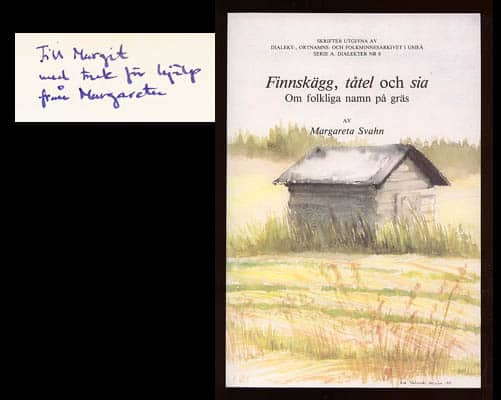 Till Margit
med tack för hjälp
från Margareta
SKRIFTER UTGIVNA AV
DIALEKT-, ORTNAMNS- OCH FOLKMINNESARKIVET I UMEÅ
SERIE A. DIALEKTER NR 8
Finnskägg, tåtel och sia
Om folkliga namn på gräs
AV
Margareta Svahn